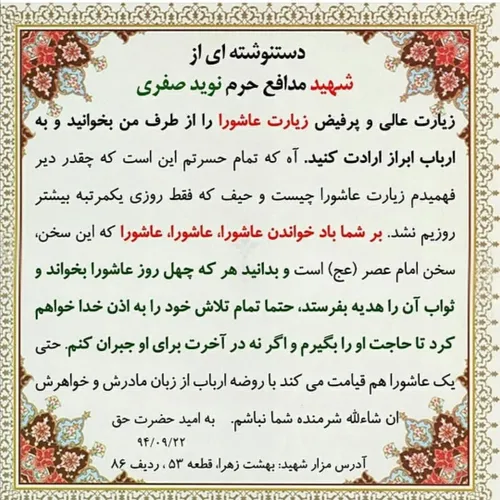 دستنوشته ای از
شهید مدافع حرم نوید صفری
زیارت عالی و پرفیض زیارت عاشورا را از طرف من بخوانید و به
ارباب ابراز ارادت کنید. آه که تمام حسرتم این است که چقدر دیر
فهمیدم زیارت عاشورا چیست و حیف که فقط روزی یکمرتبه بیشتر
روزیم نشد. بر شما باد خواندن عاشورا، عاشورا، عاشورا که این سخن،
سخن امام عصر (عج) است و بدانید هر که چهل روز عاشورا بخواند و
ثواب آن را هدیه بفرستد، حتما تمام تلاش خود را به اذن خدا خواهم
کرد تا حاجت او را بگیرم و اگر نه در آخرت برای او جبران کنم. حتی
یک عاشورا هم قیامت می کند با روضه ارباب از زبان مادرش و خواهرش
ان شاءلله شرمنده شما نباشم. به امید حضرت حق
۹۴/۰۹/۲۲
آدرس مزار شهید: بهشت زهرا، قطعه ۵۳ ، ردیف ۸۶